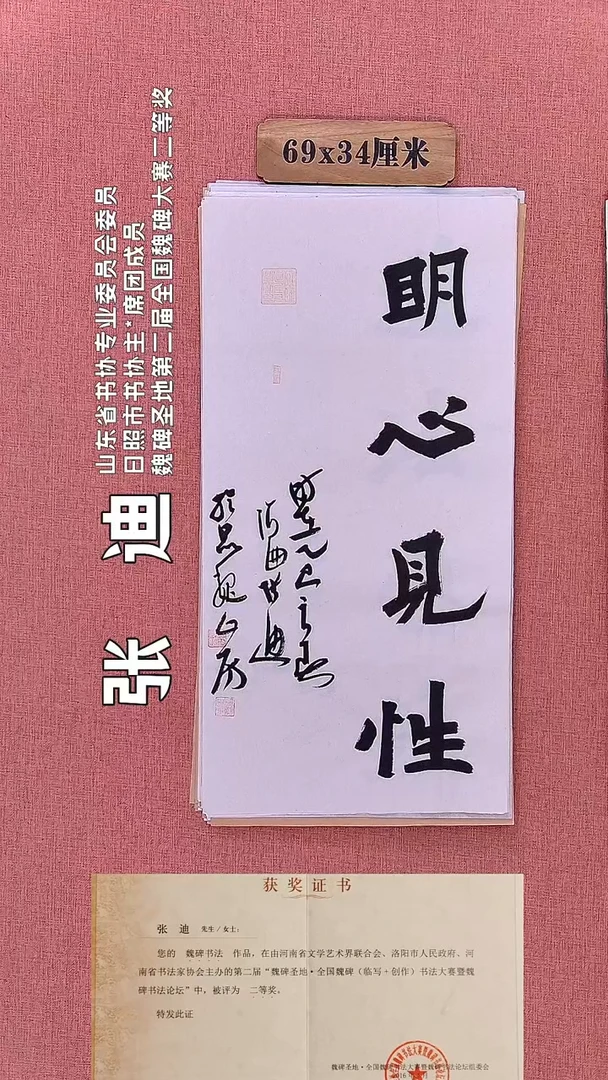 69x34厘米
明心见性
张迪
山东省书协专业委员会委员
日照市书协主*席团成员
魏碑圣地第二届全国魏碑大赛二等奖
获奖证书
张 迪 先生/女士:
您的 魏碑书法 作品，在由河南省文学艺术界联合会、洛阳市人民政府、河
南省书法家协会主办的第二届“魏碑圣地·全国魏碑（临写+创作）书法大赛暨魏
碑书法论坛”中，被评为 二等奖。
特发此证
魏碑圣地·全国魏碑书法大赛暨魏碑书法论坛组委会